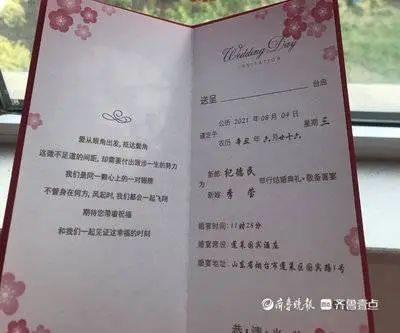 爱从眼角出发，抵达鬓角
这微不足道的间距，却需要付出跋涉一生的努力
我们是同一颗心上的一对翅膀
不管身在何方，风起时，我们都会一起飞翔
期待您带着祝福
和我们一起见证这幸福的时刻
Wedding Day
INVITATION
送呈 台启
谨定于
公历 2021 年 08 月 04 日 星期 三
农历 辛丑 年 六 月 廿十六
为
新郎 纪德民
新娘 李莹
举行结婚典礼·敬备喜宴
婚宴时间：11时28分
婚宴席设：蓬莱国宾酒店
婚宴地址：山东省烟台市蓬莱区国宾路1号
恭
齐鲁晚报 齐鲁壹点